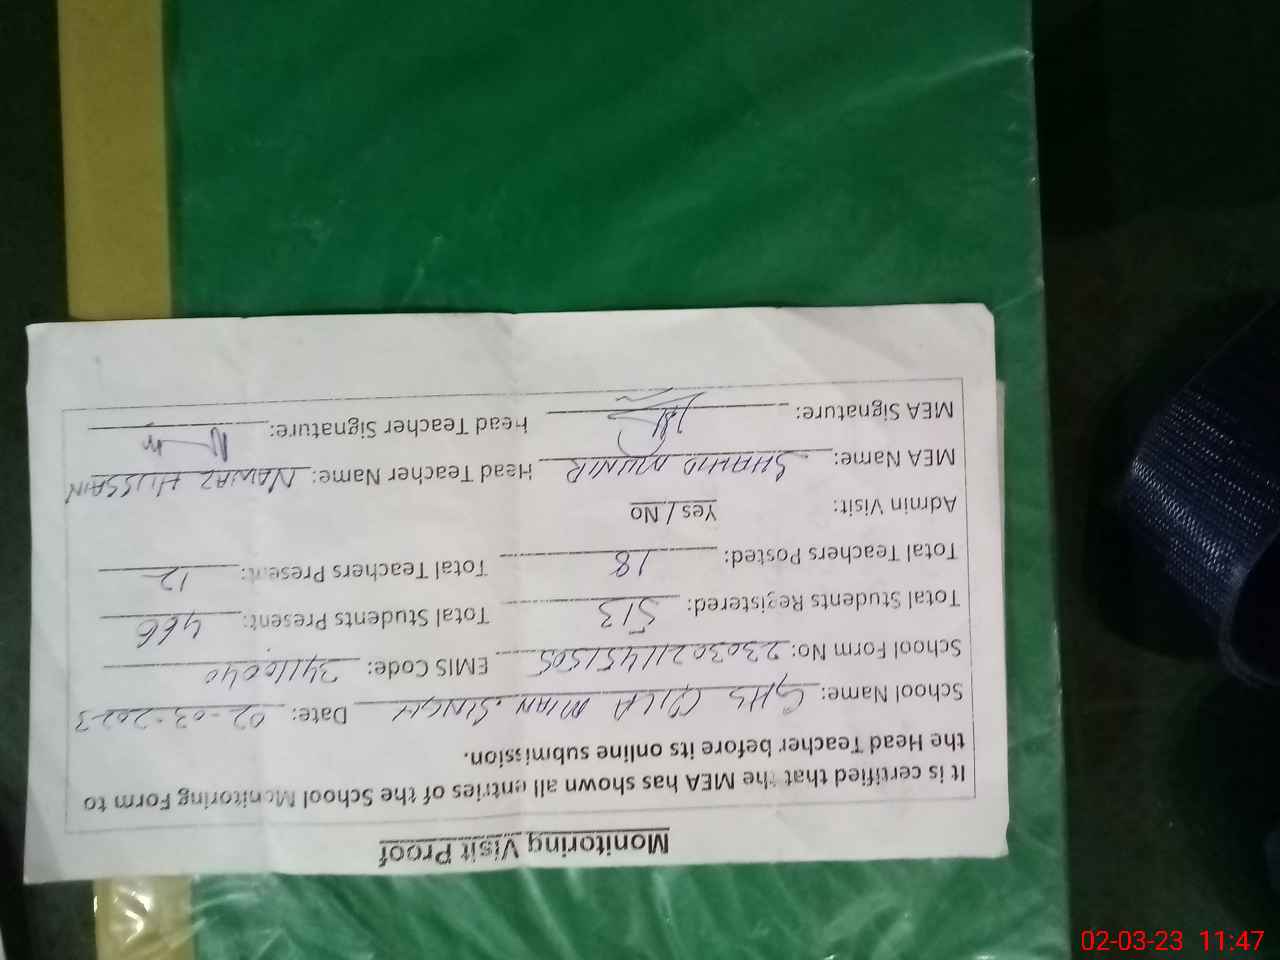 Monitoring Visit Proof
It is certified that the MEA has shown all entries of the School Monitoring Form to
the Head Teacher before its online submission.
School Name: GHS QILA MIAN SINGH Date: 02-03-2023
School Form No: 23030211451505 EMIS Code: 34110040
Total Students Registered: 513 Total Students Present: 466
Total Teachers Posted: 18 Total Teachers Present: 12
Admin Visit: Yes / No
MEA Name: SHAHID MUNIR Head Teacher Name: NAWAZ HUSSAIN
MEA Signature: Head Teacher Signature:
02-03-23 11:47